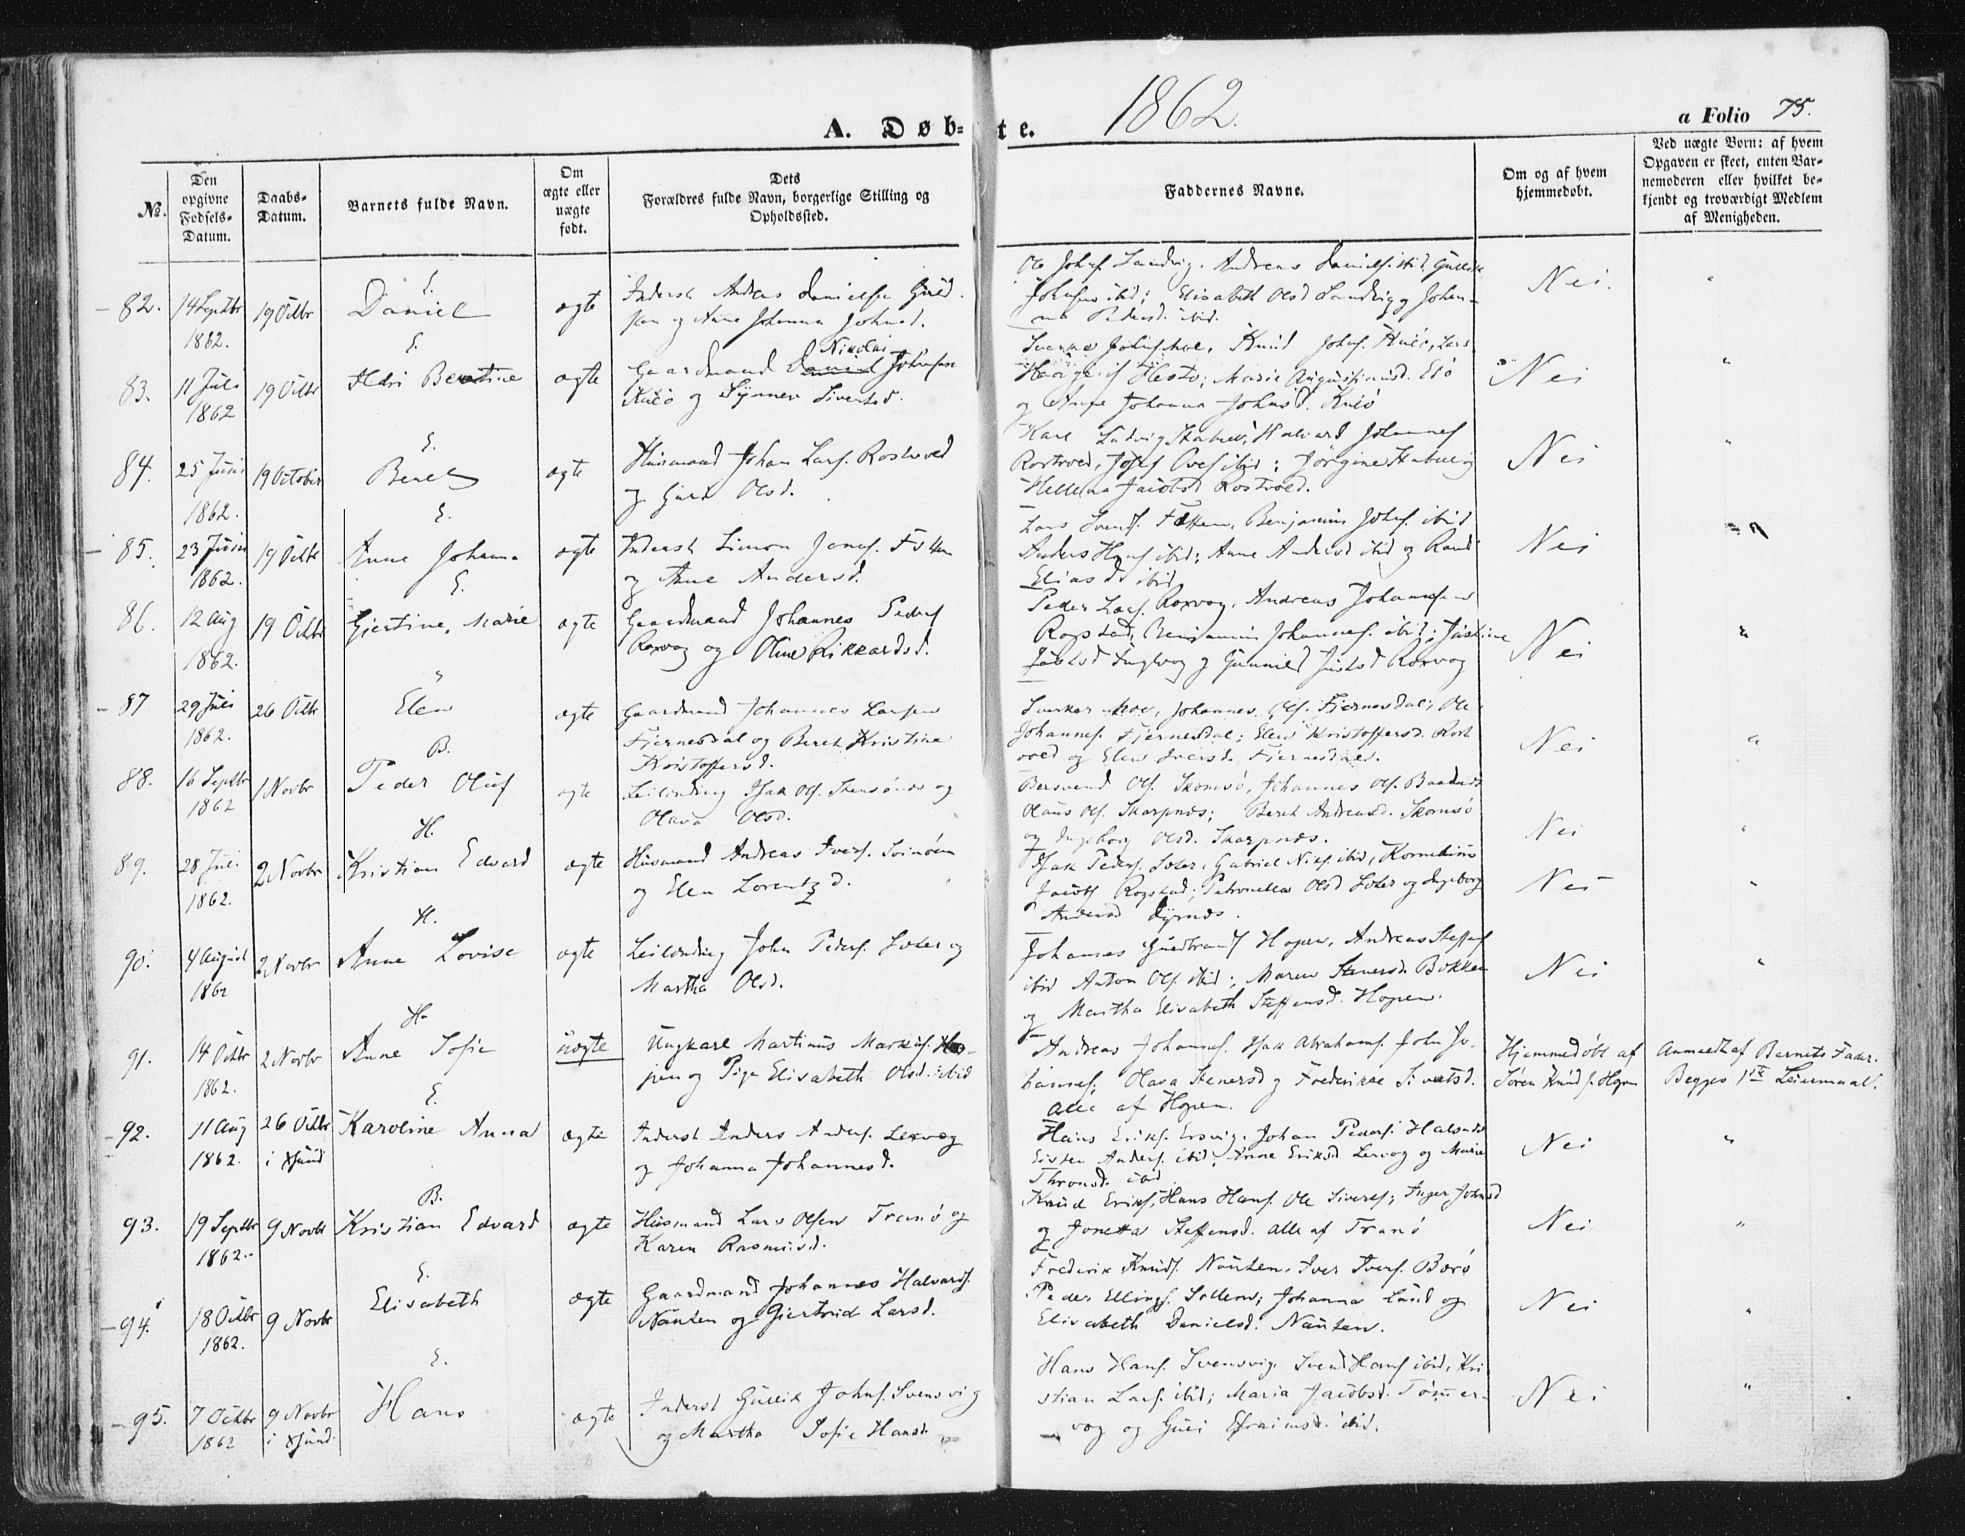 A. Døb-te. 1862. a Folio 75.
No.
Den opgivne Fødsels-Datum.
Daabs-Datum.
Barnets fulde Navn.
Om ægte eller uægte født.
Dets Forældres fulde Navn, borgerlige Stilling og Opholdssted.
Faddernes Navne.
Om og af hvem hjemmedøbt.
Ved uægte Børn: af hvem Opgaven er skeet, enten Barnemoderen eller hvilket bekjendt og troværdigt Medlem af Menigheden.
E.
82. 14 Septbr 1862. 19 Octbr Daniel ægte
Inderst Anders Danielsen
og Anne Johanna Johnsd.
Ole Johns. Sandvig. Andreas Daniels. ibid, Gullik
Johnsen ibid; Elisabeth Olsd Sandvig og Johan-
na Pedersd. ibid.
Nei. "
E.
83. 11 Juli 1862 19 Octbr Berntine ægte
Gaardmand Nikolai Johnsen
og Synnev Sivertsd.
og Anne Johanna Johnsd.
Nei "
E.
84. 25 Juni 1862. 19 October Beret ægte
Huusmand Johan Lars. Rostvod
og Guru Olsd.
Karl Ludvig Halvard Johannes.
Rostvod, ibid; Jørgine
Hellena Jacobsd Rostvold.
Nei "
E.
85. 23 Juni 1862. 19 Octbr Anne Johanna ægte
Inderst Simon Jons.
og Anne Andersd.
Lars Svends. Benjamin Johns. ibid
Anders Hans. ibid; Anne Andersd ibid og Randi
Eliasd. ibid
Nei "
E.
86. 12 Aug 1862. 19 Octbr Gjertine, Marie ægte
Gaardmand Johannes Peders.
Roxvog og Oline Rikkardsd.
Peder Lars. Roxvog. Andreas Johannesen
Rogstad, Benjamin Johannes. ibid; Justine
og Gunnild Justsd Roxvog
Nei "
"
87 29 Juli 1862. 26 Octbr Elen ægte
Gaardmand Johannes Larsen
Fjernesdal og Beret Kristine
Kristoffersd.
Johannes Ols. Fjernesdal; Ole
Johannes. Fjernesdal; Elen Kristoffersd. Rost
vold og Elen Iversd. Fjernesdal.
Nei "
B.
88. 16 Septbr 1862 1 Novbr Peder Oluf ægte
Leilending Isak Ols. Stensønes og
Olava Olsd.
Bersvend Ols. Skomsø, Johannes Ols.
Olaus Ols. Skarpnæs; Beret Andreasd. Skomsø
og Ingeborg Olsd. Skarpnæs.
Nei "
H.
89. 28 Juli 1862. 2 Novbr Kristian Edvard ægte
Huusmand Andreas Ivers. Svinøen
og Elen Lorentzd.
Isak Peders. Soler, Gabriel Nils. ibid, Kornelius
Jacobs. Rogstad; Petronella Olsd Soler og Ingeborg
Andersd Dyrnæs.
Nei "
H.
90. 4 August 1862 2 Novbr Anne Lovise ægte
Leilending John Peders. Soler og
Martha Olsd.
Johannes Hopen, Andreas Steffens.
ibid Anton Ols. ibid; Maren Stenersd. Bokken
og Martha Elisabeth Steffensd. Hopen.
Nei "
H.
91. 14 Octbr 1862. 2 Novbr Anne Sofie uægte
Ungkarl Martinus Markus. Ho-
pen og Pige Elisabeth Olsd. ibid
Andreas Johannes. Isak Abrahams. John Jo-
hannes; Olava Stenersd og Frederikke Sivertsd.
Alle af Hopen.
Hjemmedøbt af Søren Knuds. Hopen
Anmeldt af Barnets Fader. Begges 1ste Leiermaal.
E.
92. 11 Aug 1862. 26 Octbr i Kjund Karoline Anna ægte
Inderst Anders Anders. Lervog
og Johanna Johannesd.
Hans Eriks. Ersvig. Johan Peders. Halsnæs
Anders. ibid; Anne Eriksd Lervog og Marie
Thronsd. ibid
Nei "
B.
93. 19 Septbr 1862. 9 Novbr Kristian Edvard ægte
Huusmand Lars Olsen Tranø og
Karen Rasmusd.
Knud Eriks, Hans Hans. Ole Siverts; Inger Johnsd
og Jonetta Steffensd. alle af Tranø
Nei "
E.
94. 18 Octbr 1862. 9 Novbr Elisabeth ægte
Gaardmand Johannes Halvards.
Nausten og Gjertrud Larsd.
Frederik Knuds. Nausten. Iver Ivers. Barø
Peder Ellings. Sollem; Johanna Lund og
Elisabeth Danielsd. Nausten.
Nei "
E.
95. 7 Octbr 1862 9 Novbr i Kjund. Hans ægte
Inderst Gullik Johns. Svensvig
og Martha Sofie Hansd.
Hans Hans. Svensvig. Svend Hans. ibid, Kri
stian Lars. ibid; Maria Jacobsd. Tømmer-
vog og Guri Efraimsd. ibid.
Nei "